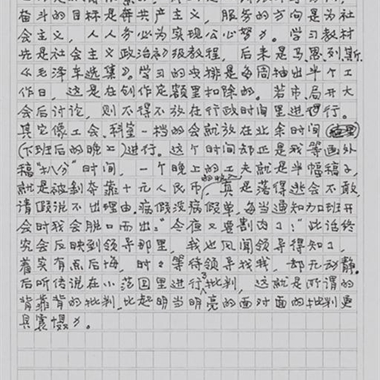 奋斗的目标是奔共产主义，服务的方向是为社
会主义，人人务必为实现公心努力。学习教材
先是社会主义政治初级教程，后来是马恩列斯
《毛泽东选集》。学习的安排是每周抽出半个工
作日，这是在创作定额里扣除的。若市局开大
会后讨论，则不得不放在行政时间里进行。
其它像工会、科室一档的会就放在业余时间
（下班后的晚上）进行。这个时间却正是我等画外
稿"扒分"时间，一个晚上的工夫就是半幅稿子，
就是被剥夺靠十元人民币，真是落得逃会不敢
请假说不出理由。病假没病假单，每当通知加班开
会时我会脱口而出："今夜又要割肉了！"此话终
究会反映到领导那里，我也风闻领导得知了，
着实有点后悔，时时等待领导找我，却无动静。
后听传说在小范围里进行了批判，这就是所谓的
背靠背的批判，比起明当明亮的面对面的批判更
具震慑力。